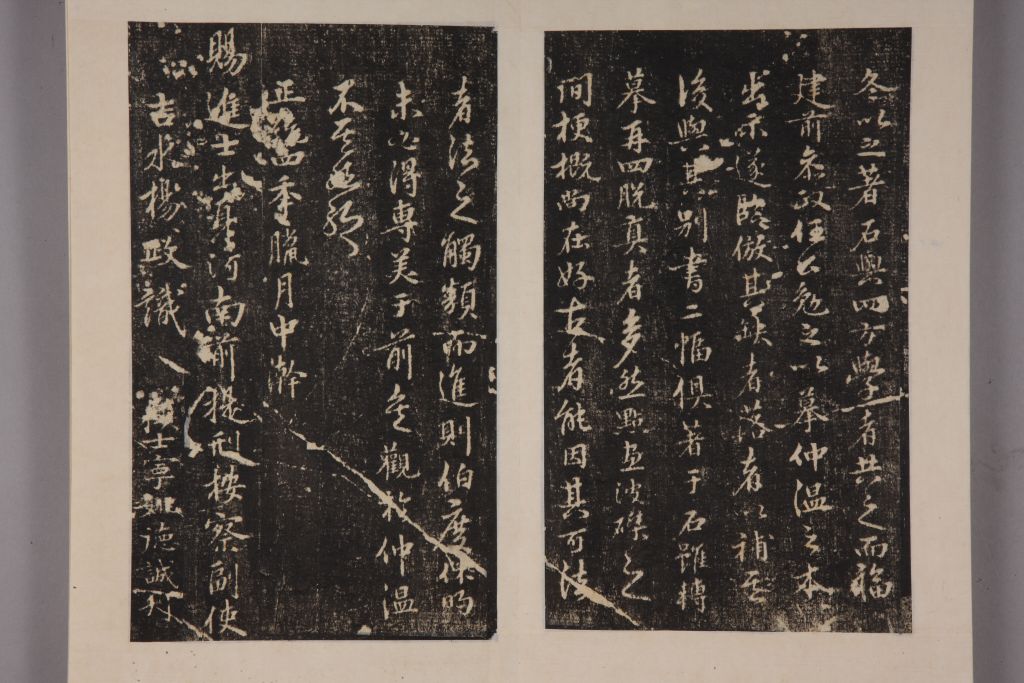 冬以之著石與四方學者共之而福
建前參政任公勉之以摹仲溫之本
出示遂臨倣其缺者落者以補至
後與其別書二幅俱著于石雖轉
摹再四脫真者多然點畫波磔之
間梗概尚在好古者能因其可法
者法之觸類而進則伯度休明
未必得專美于前矣觀於仲溫
不其
正統四季臘月中澣
賜進士出身河南前提刑按察副使
吉水楊政識 士寧姚德誠刊